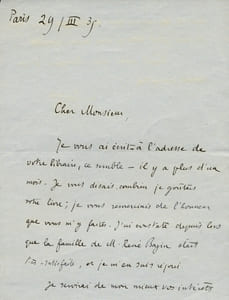 Paris 29/III 35
Cher Monsieur,
Je vous ai écrit à l'adresse de
votre libraire, ce semble – il y a plus d'un
mois. Je vous disais combien je goûtais
votre livre ; je vous remerciais de l'honneur
que vous m'y faites. J'ai constaté depuis lors
que la famille de M. René Bazin était
très satisfaite, or je m'en suis réjoui
Je servirai de mon mieux vos intérêts